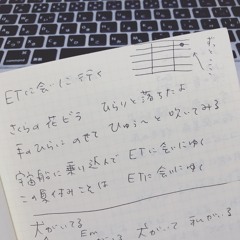 ETに会いに行く
さくらの花ビラ ひらりと落ちたよ
手のひらに のせて ひゅ〜と 吹いてみる
宇宙船に乗り込んで ETに会いにゆく
この夏休みことは ETに会いにゆく
犬がいてる
Em
犬がいて 私がいる